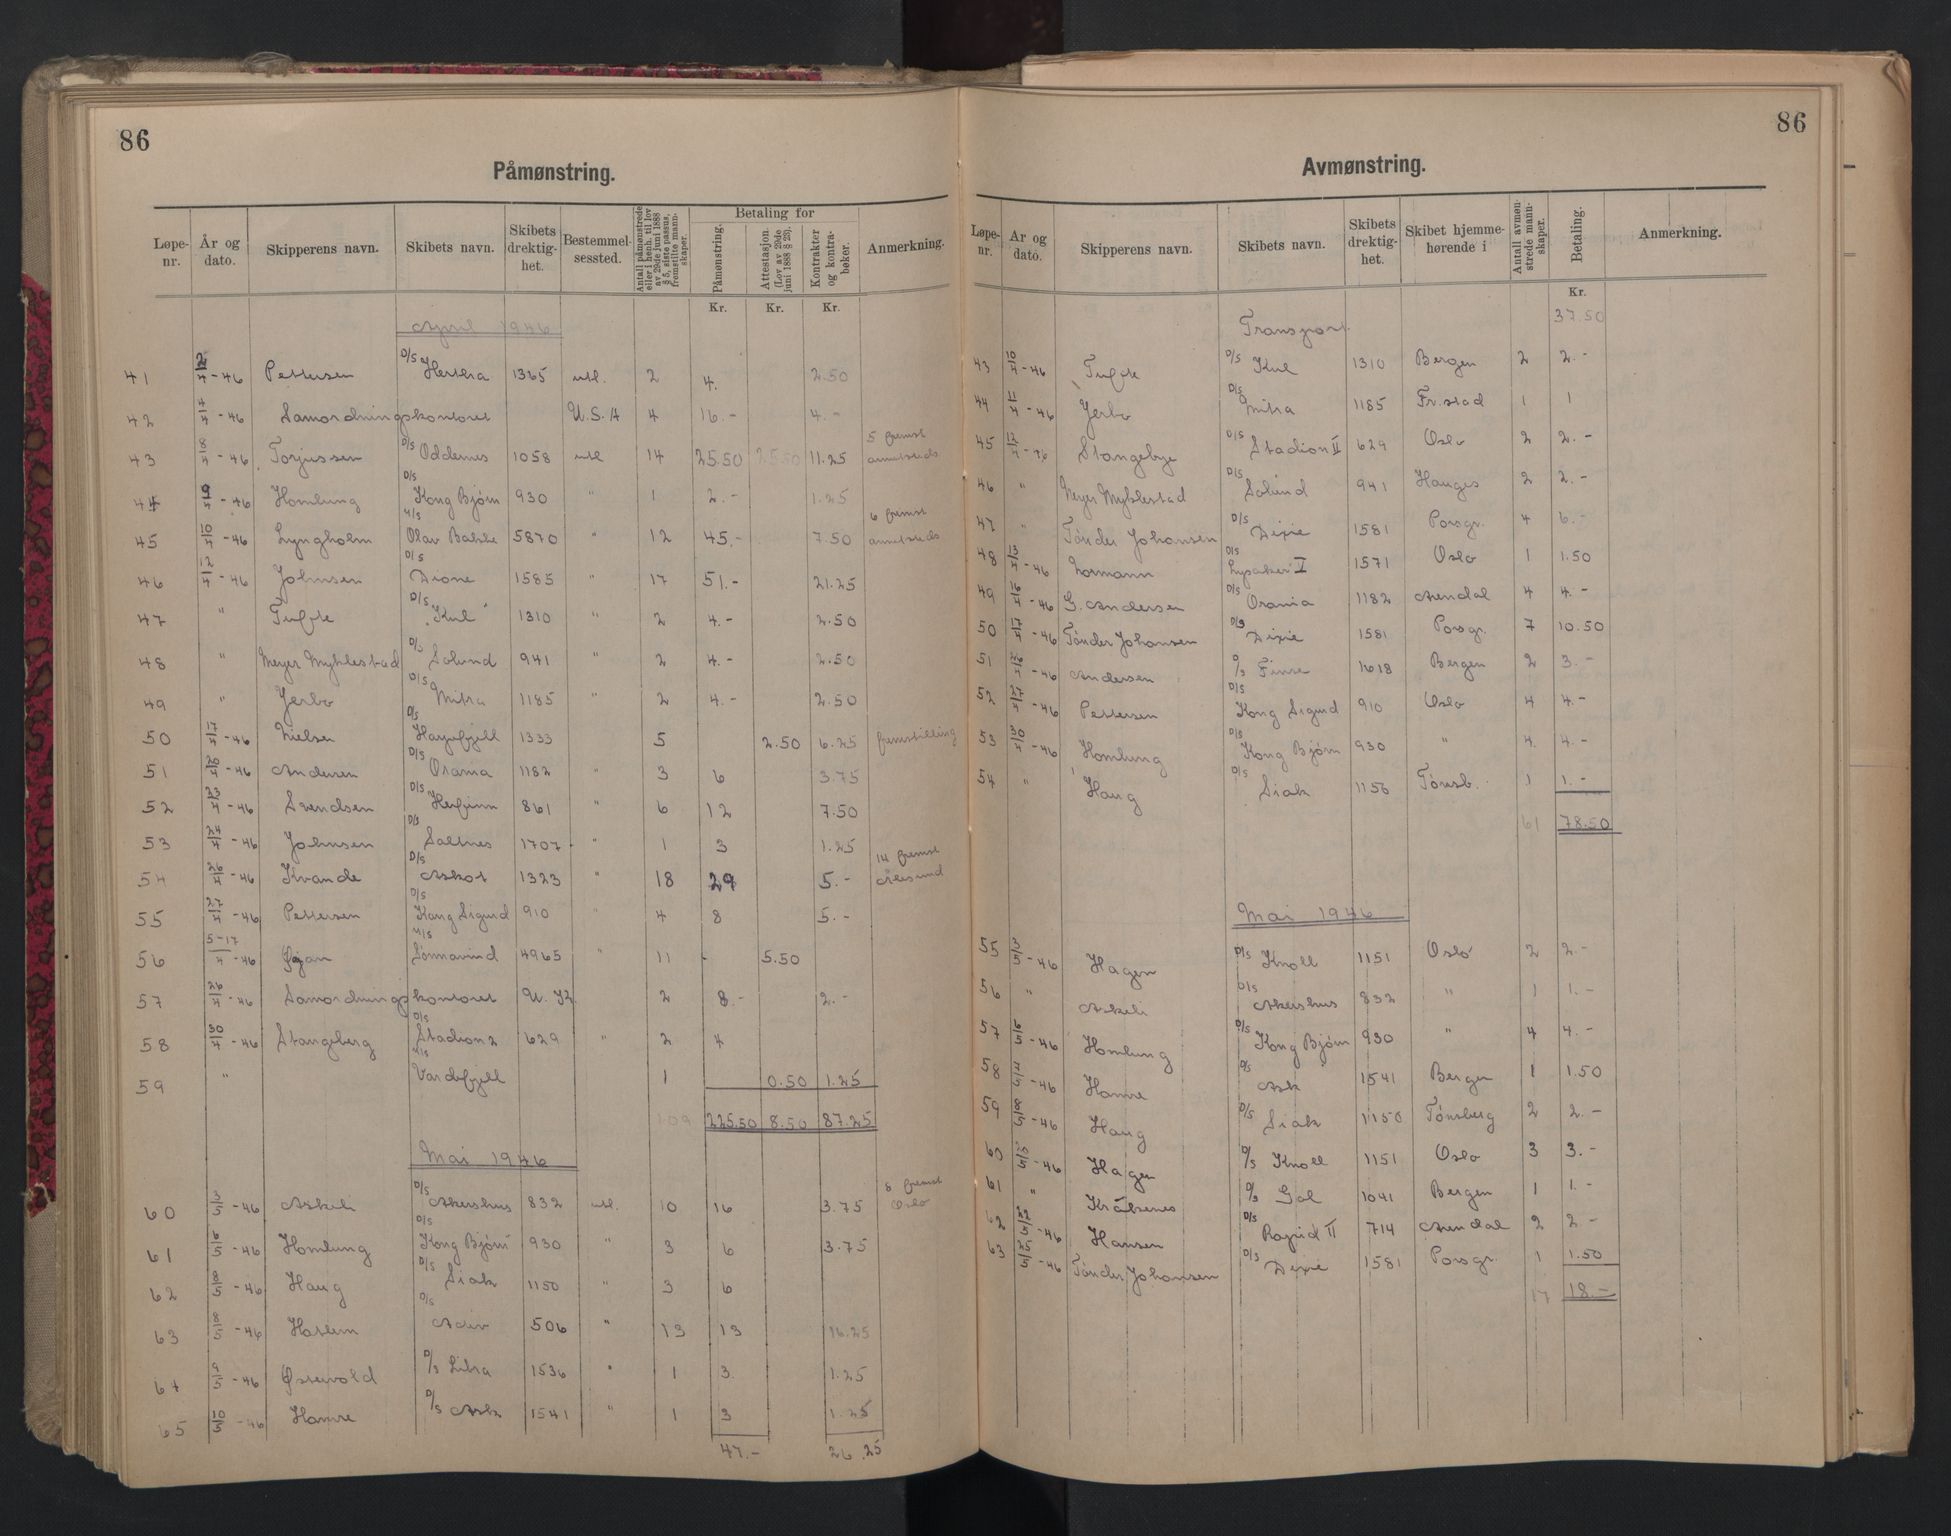 86
Påmønstring.
Løpe-nr. | År og dato. | Skipperens navn. | Skibets navn. | Skibets drektig-het. | Bestemmel-sessted. | Antall påmønstrede eller i henh. til lov av 29de juni 1888 § 5, siste passus, fremstilte mann-skaper. | Betaling for | Påmønstring. | Attestasjon. (Lov av 29de juni 1888 § 23). | Kontrakter og kontra-bøker. | Anmerkning.
Kr. Kr. Kr.
April 1946
41 2/4-46 Pettersen D/S Hertha 1365 utl. 2 4. 2.50
42 4/4-46 Samordningskontoret U.S.A 4 16.- 4.-
43 8/4-46 Torjussen D/S Oddernes 1058 utl 14 25.50 25.50 11.25 5 fremst annetsteds
44 9/4-46 Homlung D/S Kong Bjørn 930 " 1 2.- 1.25
45 10/4-46 Lyngholm M/S Olav Bakke 5870 " 12 45.- 7.50 6 fremst annetsteds
46 12/4-46 Johnsen D/S Dione 1585 " 17 51.- 21.25
47 " Tufte D/S "Kul" 1310 " 2 4.- 2.50
48 " Meyer Myklestad D/S Solund 941 " 2 4.- 2.50
49 " Jerbo D/S Mitra 1185 " 2 4.- 2.50
50 17/4-46 Nielsen D/S Høyefjell 1333 5 2.50 6.25 fremstilling
51 20/4-46 Andersen D/S Orania 1182 " 3 6 3.75
52 23/4-46 Svendsen D/S Herfinn 861 " 6 12 7.50
53 24/4-46 Johnsen D/S Saltnes 1707 " 1 3 1.25
54 26/4-46 Kvande D/S Askot 1323 " 18 29 5.- 14 fremst Ålesund
55 27/4-46 Pettersen D/S Kong Sigurd 910 " 4 8 5.-
56 5-17/4-46 M/S Sønnavind 4965 " 11 - 5.50
57 26/4-46 Samordningskontoret 2 8.- 2.-
58 30/4-46 Stangeberg D/S Stadion 2 629 " 2 4
59 " M/S Vardefjell 1 0.50 1.25
109 225.50 8.50 87.25
Mai 1946
60 3/5-46 Askeli D/S Akershus 832 utl. 10 16 3.75 8 fremst Oslo
61 6/5-46 Homlung D/S Kong Bjørn 930 " 3 6 3.75
62 8/5-46 Haug D/S Siak 1150 " 3 6
63 8/5-46 D/S 506 " 13 13 16.25
64 9/5-46 Østervold D/S Libra 1536 " 1 3. 1.25
65 10/5-46 Hamre D/S Ask 1541 " 1 3 1.25
47.- 26.25
86
Avmønstring.
Løpe-nr. | År og dato. | Skipperens navn. | Skibets navn. | Skibets drektig-het. | Skibet hjemme-hørende i | Antall avmøn-strede mann-skaper. | Betaling. | Anmerkning.
Kr.
Transport 37.50
43 10/4-46 Tufte D/S Kul 1310 Bergen 2 2.-
44 11/4-46 Jerbo D/S Mitra 1185 Fr.stad 1 1
45 12/4-46 Stangebye D/S Stadion II 629 Oslo 2 2.-
46 " Meyer Myklestad D/S Solund 941 Hauges 2 2.-
47 " Tønder Johansen D/S Dixie 1581 Porsgr. 4 6.-
48 13/4-46 Normann D/S Lysaker V 1571 Oslo 1 1.50
49 16/4-46 G. Andersen D/S Orania 1182 Arendal 4 4.-
50 17/4-46 Tønder Johansen D/S Dixie 1581 Porsgr. 7 10.50
51 26/4-46 Andersen D/S Finse 1618 Bergen 2 3.-
52 27/4-46 Pettersen D/S Kong Sigurd 910 Oslo 4 4.-
53 30/4-46 Homlung D/S Kong Bjørn 930 " 4. 4.-
54 " Haug D/S Siak 1150 Tønsb. 1 1.-
61 78.50
Mai 1946
55 3/5-46 Hagen D/S Knoll 1151 Oslo 2 2.-
56 " Askeli D/S Akershus 832 " 1 1.-
57 6/5-46 Homlung D/S Kong Bjørn 930 " 4 4.-
58 /5-46 Hamre D/S Ask 1541 Bergen 1 1.50
59 8/5-46 Haug D/S Siak 1150 Tønsberg 2 2.-
60 /5-46 Hagen D/S Knoll 1151 Oslo 3 3.-
61 " Kråkenes D/S Gol 1041 Bergen 1 1.-
62 22/5-46 Hansen D/S 714 Arendal 2 2-
63 25/5-46 Tønder Johansen D/S Dixie 1581 Porsgr. 1 1.50
17 18.-